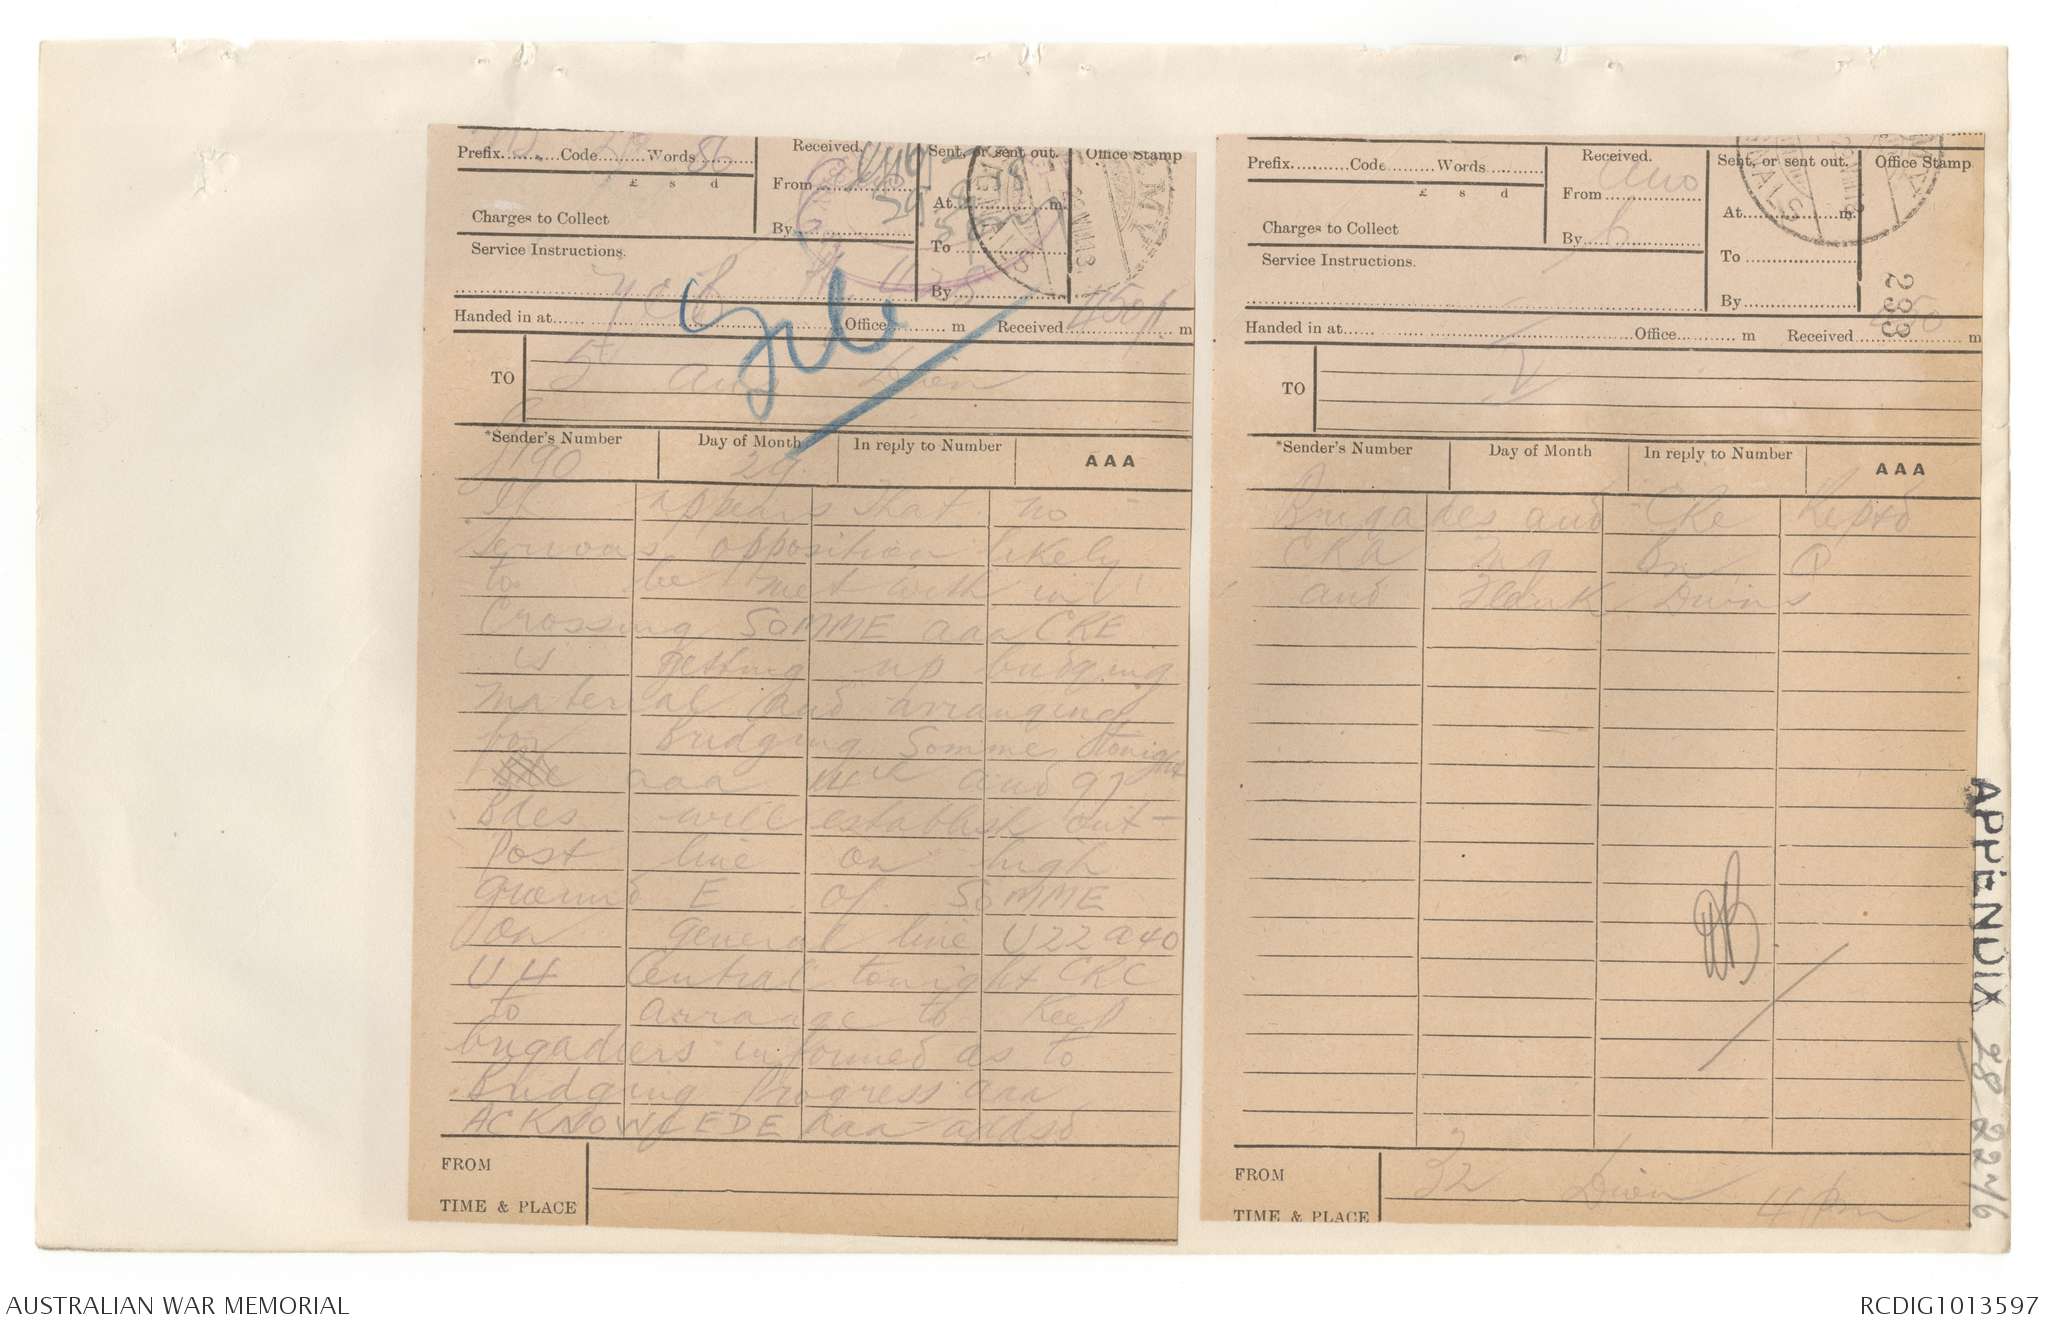 Prefix.......... Code......... Words ......... 86
£ s d
Charges to Collect
Service Instructions.
Received.
From
By
Sent, or sent out.
At............m.
To
By
Office Stamp
File
Handed in at...... Office.......... m Received.......... m
TO
5 Aus Divn
*Sender's Number
Day of Month
In reply to Number
AAA
G190
29
It appears that no
serious opposition likely
to be met with in
Crossing SOMME aaa CRE
is getting up bridging
material and arranging
for Bridging Somme tonight
aaa 14th and 97
Bdes will establish out-
Post line on high
ground E of SOMME
on general line U22a40
U4 Central tonight CRE
to arrange to Keep
brigadiers informed as to
Bridging Progress aaa
ACKNOWLEDE aaa addsd
FROM
TIME & PLACE
Prefix.......... Code......... Words .........
£ s d
Charges to Collect
Service Instructions.
Received.
From
By
Sent, or sent out.
At............m.
To
By
Office Stamp
233
Handed in at...... Office.......... m Received.......... m
TO
2
*Sender's Number
Day of Month
In reply to Number
AAA
Brigades and CRE Reptd
CRA MG Bn Q
and Flank Divns
FROM
32 Divn
TIME & PLACE
4 pm
APPENDIX 28 2276
AUSTRALIAN WAR MEMORIAL
RCDIG1013597